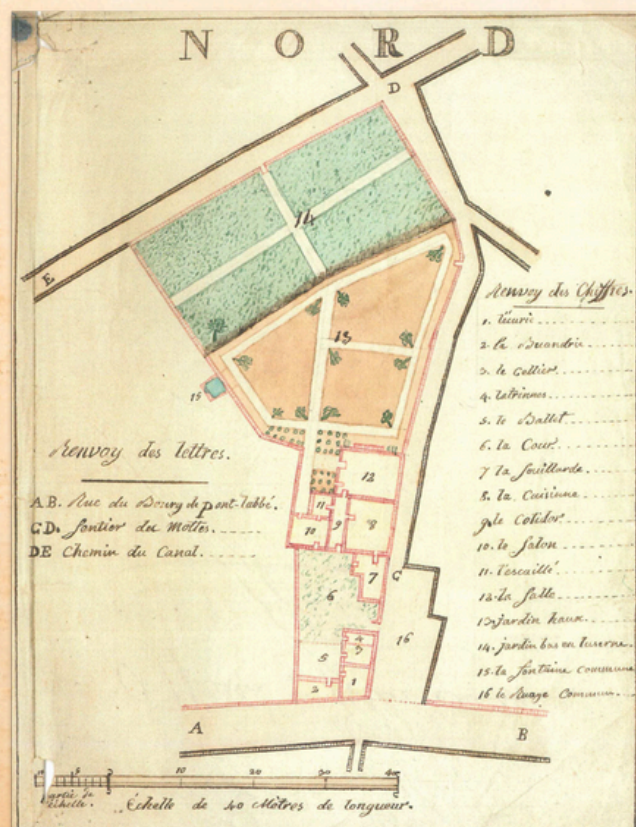 NORD
D
E
14
13
15
Renvoy des lettres.
AB. Rue du Bourg de pont-labbé.
CD. Sentier des Mottes.
DE Chemin du Canal.
Renvoy des Chiffres.
1. lécurie
2 la Buandrie
3. le Cellier
4. latrinnes
5. le Ballet
6. la Cour
7 la souillarde.
8. la Cuisinne
9. le Colidor
10. le Salon
11. lescaillé
12. la Salle
13. jardin haux
14. jardin bas en luserne.
15. la fontaine commune
16 le Ruage Commun
12
11
10
9
8
7
C
6
16
4
3
5
2
1
A
B
10
20
30
40
partie de léchelle.
Échelle de 40 Mètres de longueur.